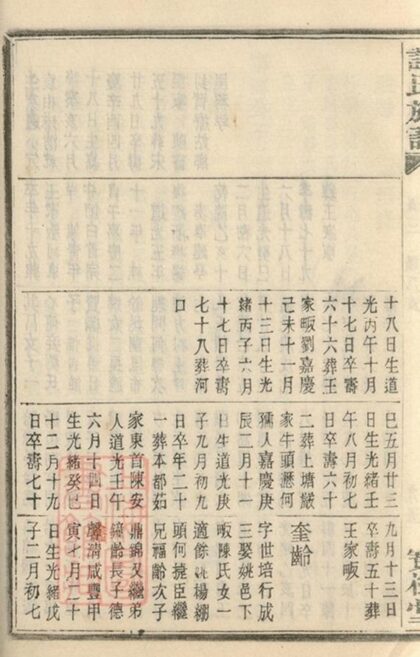 氏族譜
十八日生道
光丙午十月
十七日卒壽
六十六葬王
家畈劉嘉慶
己未十一月
十三日生光
緒丙子六月
十七日卒壽
七十八葬河
口
巳五月廿三
日生光緒壬
午八月初七
日卒壽六十
二葬上塘嚴
家牛頭瀝何
孺人嘉慶庚
辰二月十一
日生道光庚
子九月初九
日卒年二十
一葬本都茹
家東首陳安
人道光壬午
六月十四日
生光緒癸巳
十二月十九
日卒壽七十
九月十三日
卒壽五十葬
王家畈
奎齡
字世培行成
三娶姚邑下
畈陳氏女一
適餘姚楊綳
頭何捷臣繼
兄福齡次子
鼎錦又繼弟
鐘齡長子德
馨清咸豐甲
寅七月二十
日生光緒戊
子二月初七